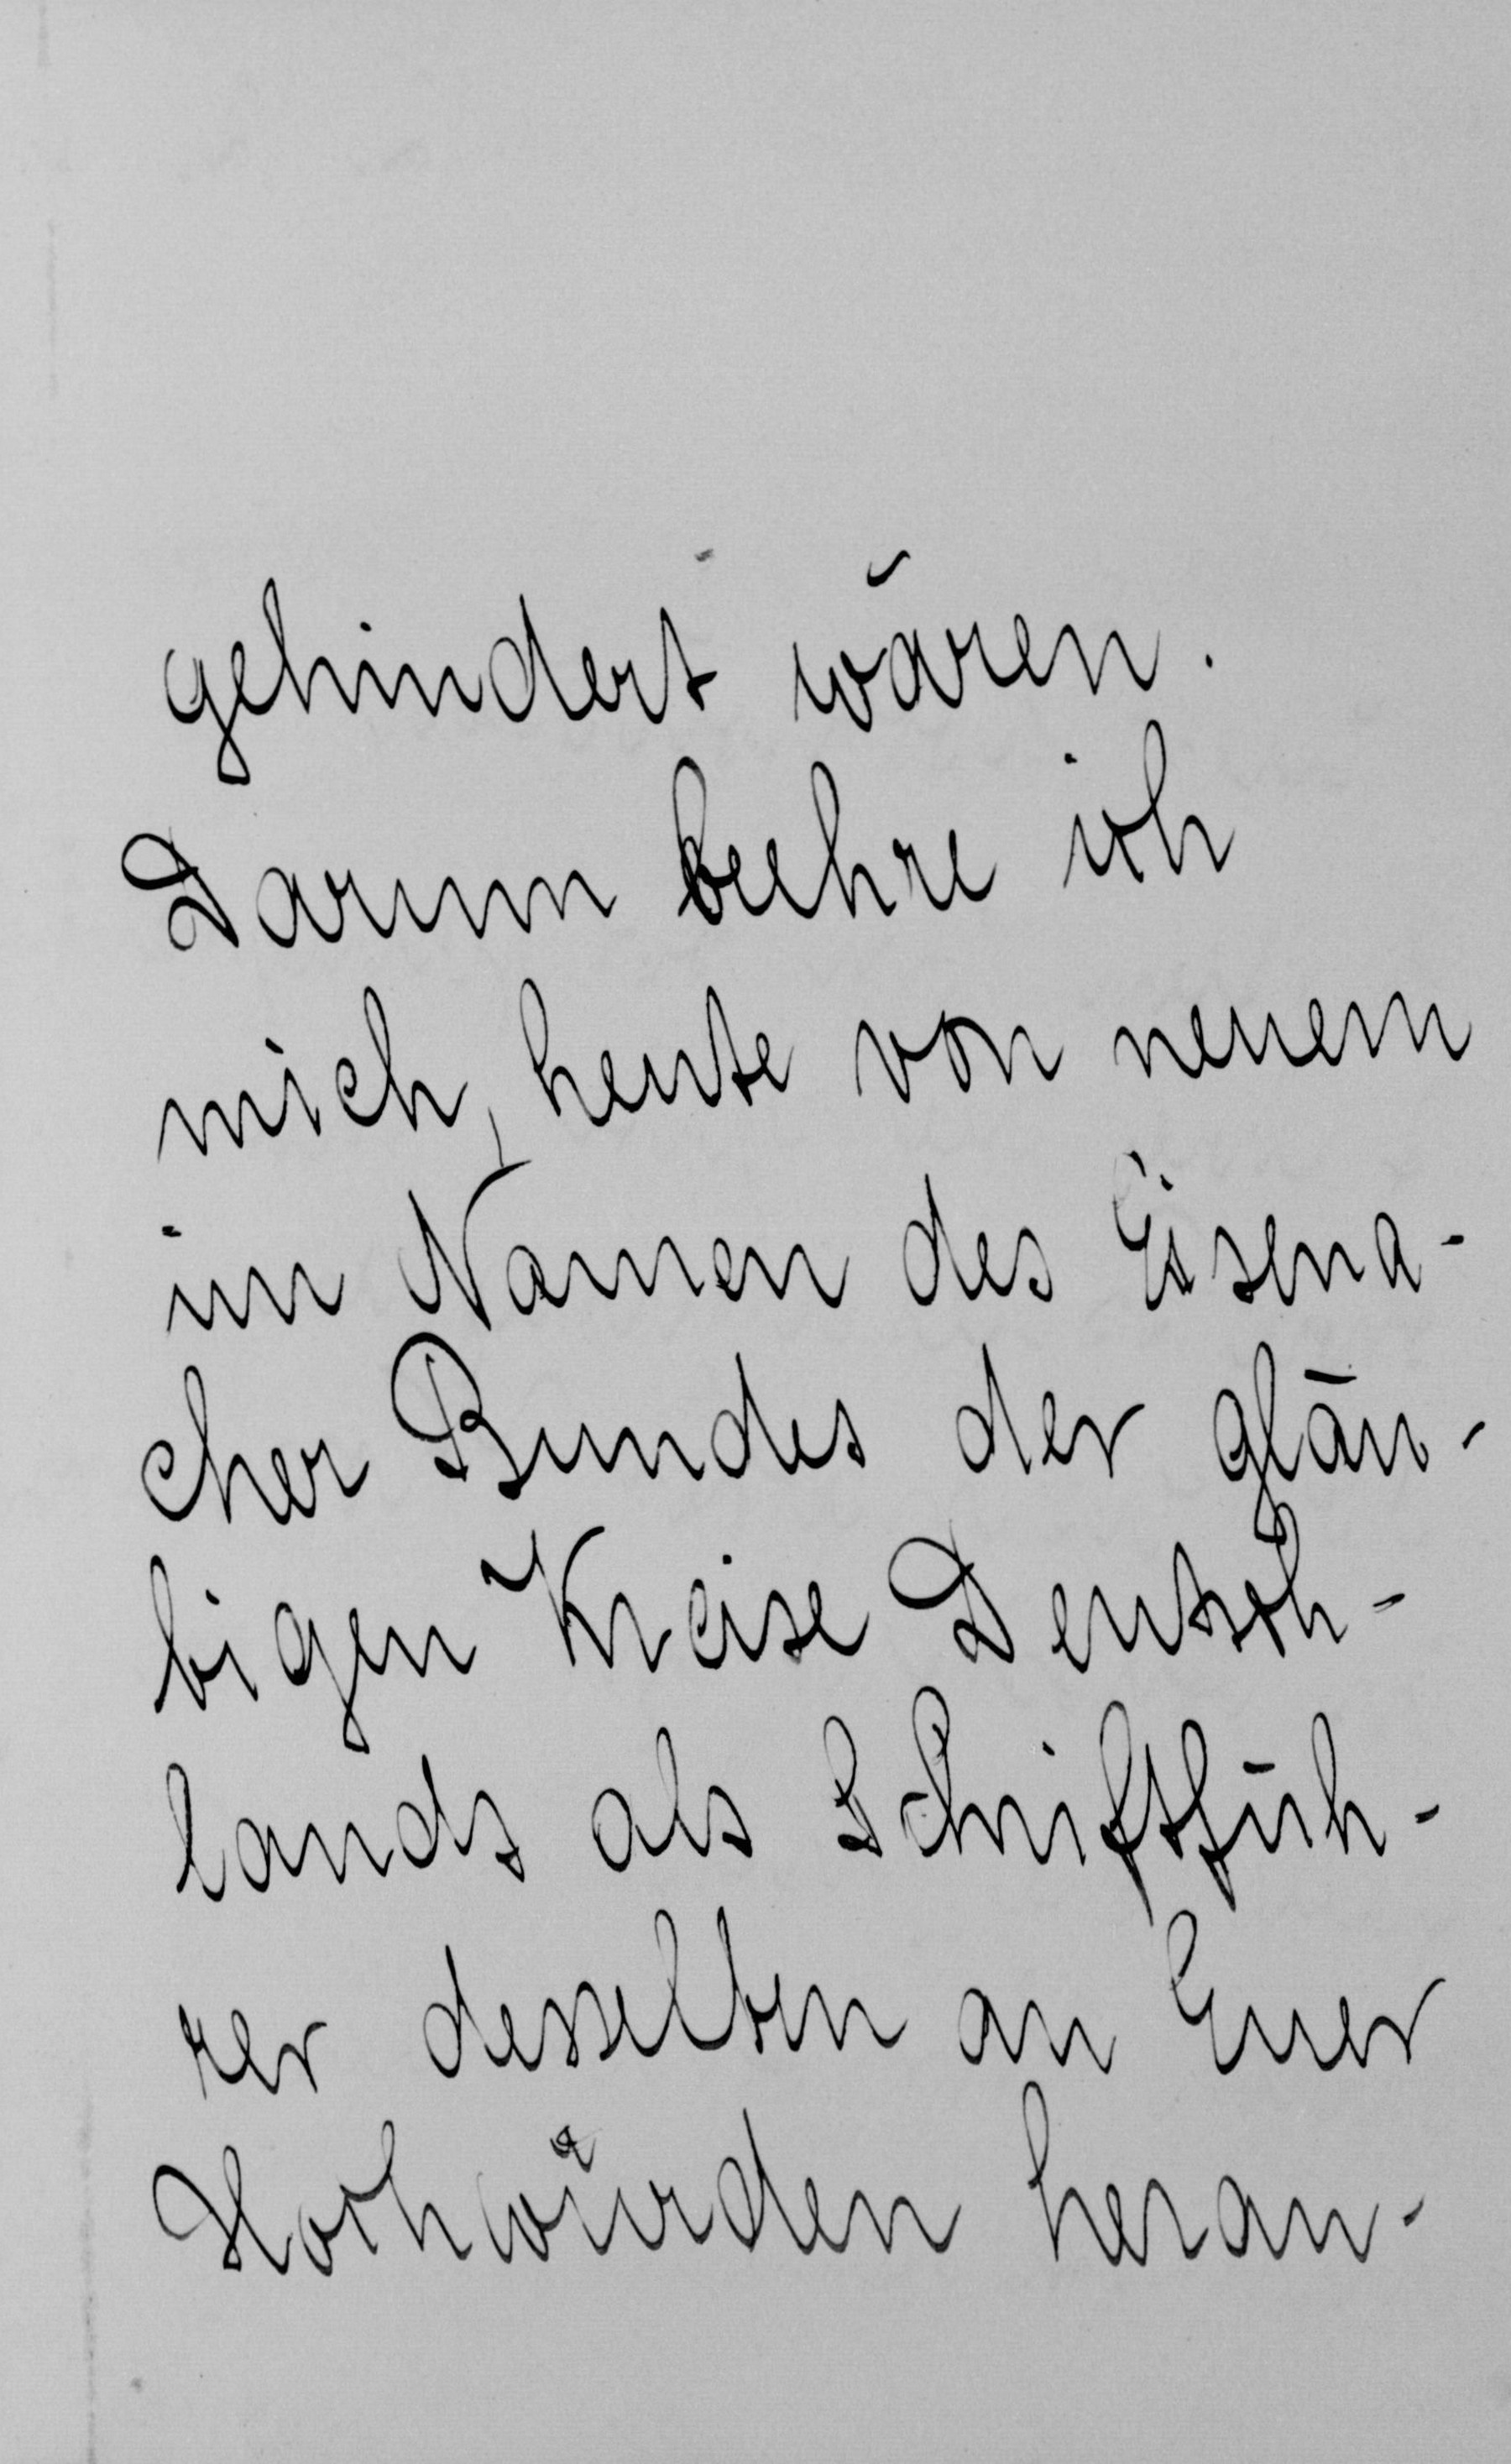 gehindert wären.
Darum beehre ich
mich, heute von neuem
im Namen des Eisena-
cher Bundes der gläu-
bigen Kreise Deutsch-
lands als Schriftfüh-
rer desselben an Euer
Hochwürden heran-